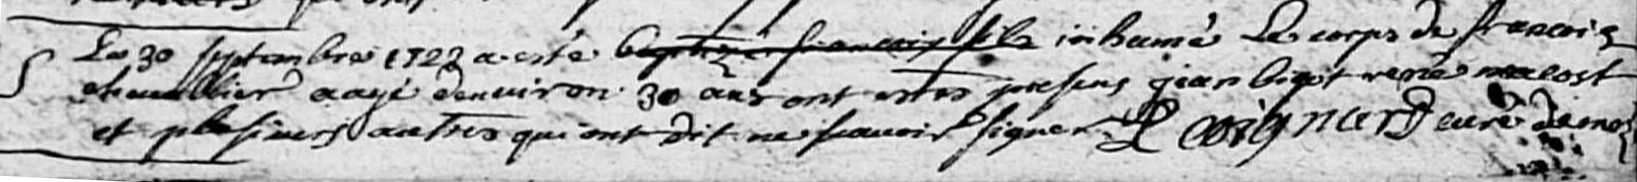 S Le 30 septembre 1722 a esté baptizé francois fils inhumé Le corps de francois
chevallier aagé denuiron 30 ans ont estes presens jean bigot rené macost
et plusieurs autres qui ont dit ne scauoir signer. L Coignard curé